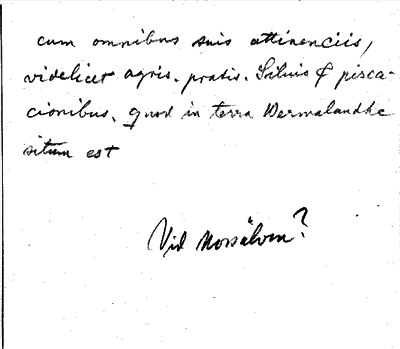 cum omnibus suis attinenciis,
videlicet agris. pratis. Siluis & pisca-
cionibus. quod in terra Wermalandhe
situm est
Vid Norsälven?